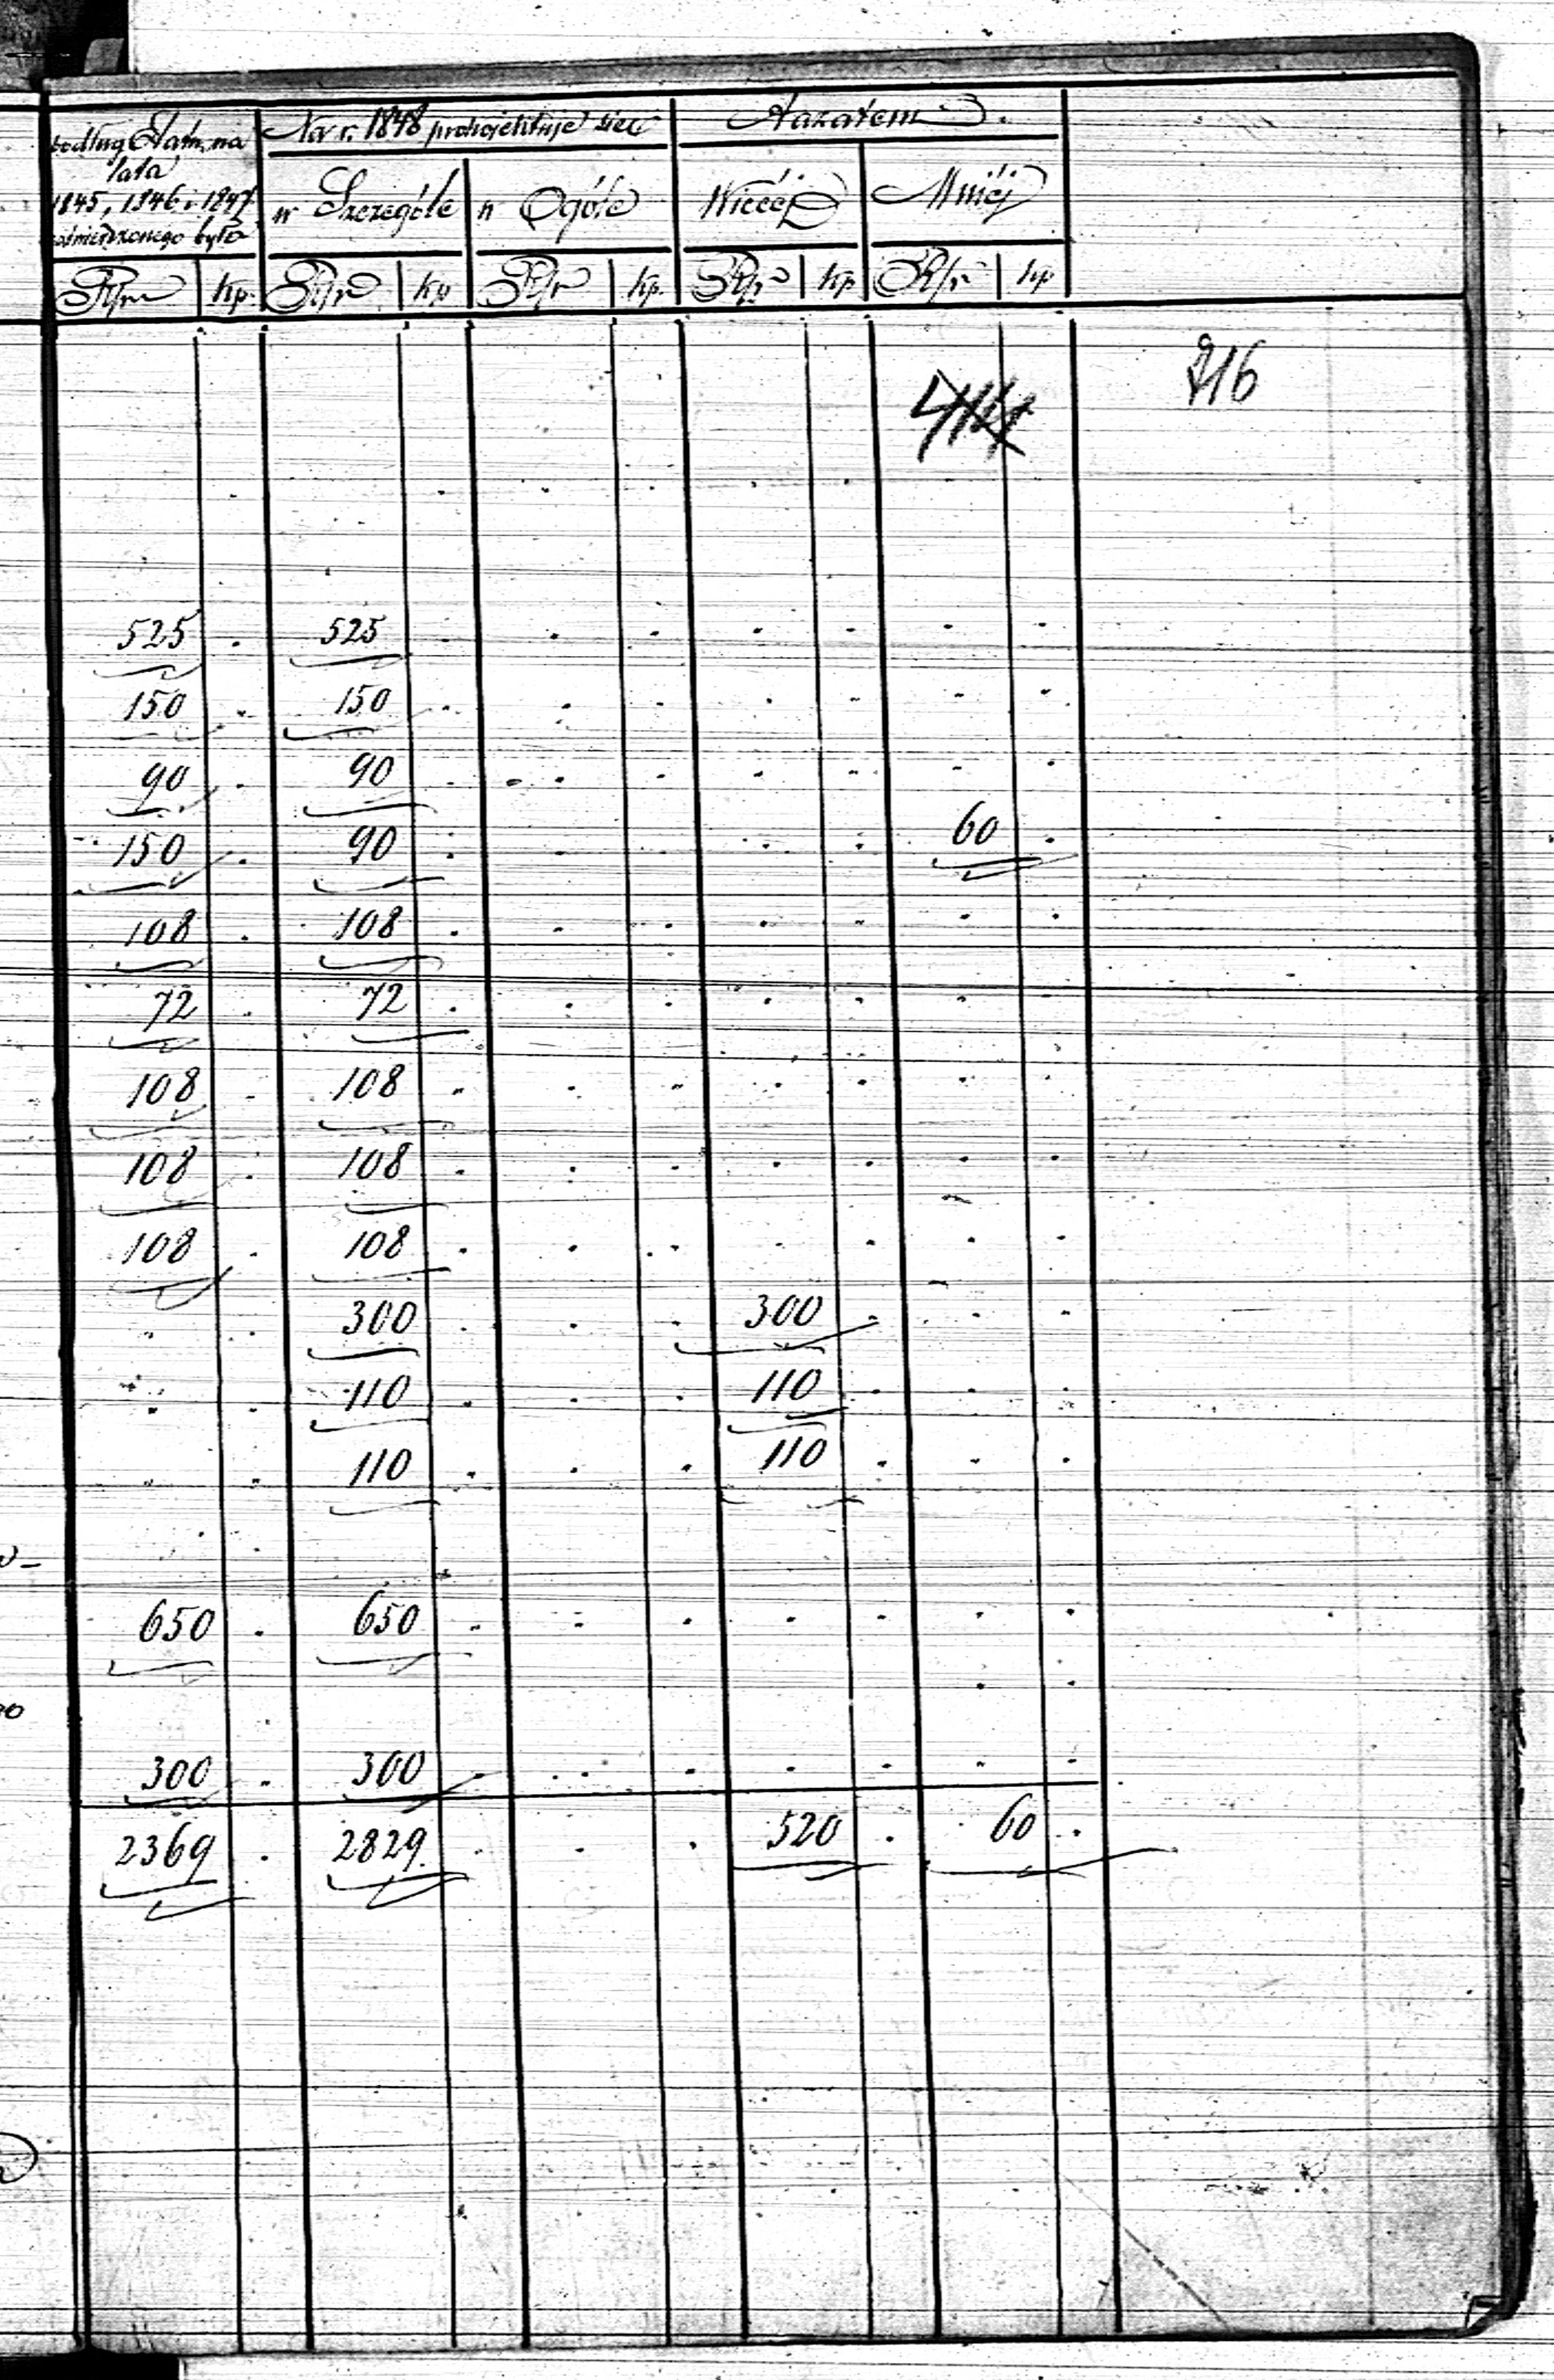 podług Etatu na Na r. 1848 projektuje się A zatem
lata
1845, 1846 i 1847 w Szczególe w Ogóle Więcéj Mniéj
zatwierdzonego było
Rsr kp. Rsr kp Rsr kp. Rsr kp Rsr kp
216
525 . 525 . . . . . . .
150 . 150 . . . . . . .
90 . 90 . . . . . . .
150 . 90 . . . . . 60 .
108 . 108 . . . . . . .
72 . 72 . . . . . . .
108 . 108 . . . . . . .
108 . 108 . . . . . . .
108 . 108 . . . . . . .
. . 300 . . . 300 . . .
. . 110 . . . 110 . . .
. . 110 . . . 110 . . .
650 . 650 . . . . . . .
300 . 300 . . . . . . .
2369 . 2829 . . . 520 . 60 .